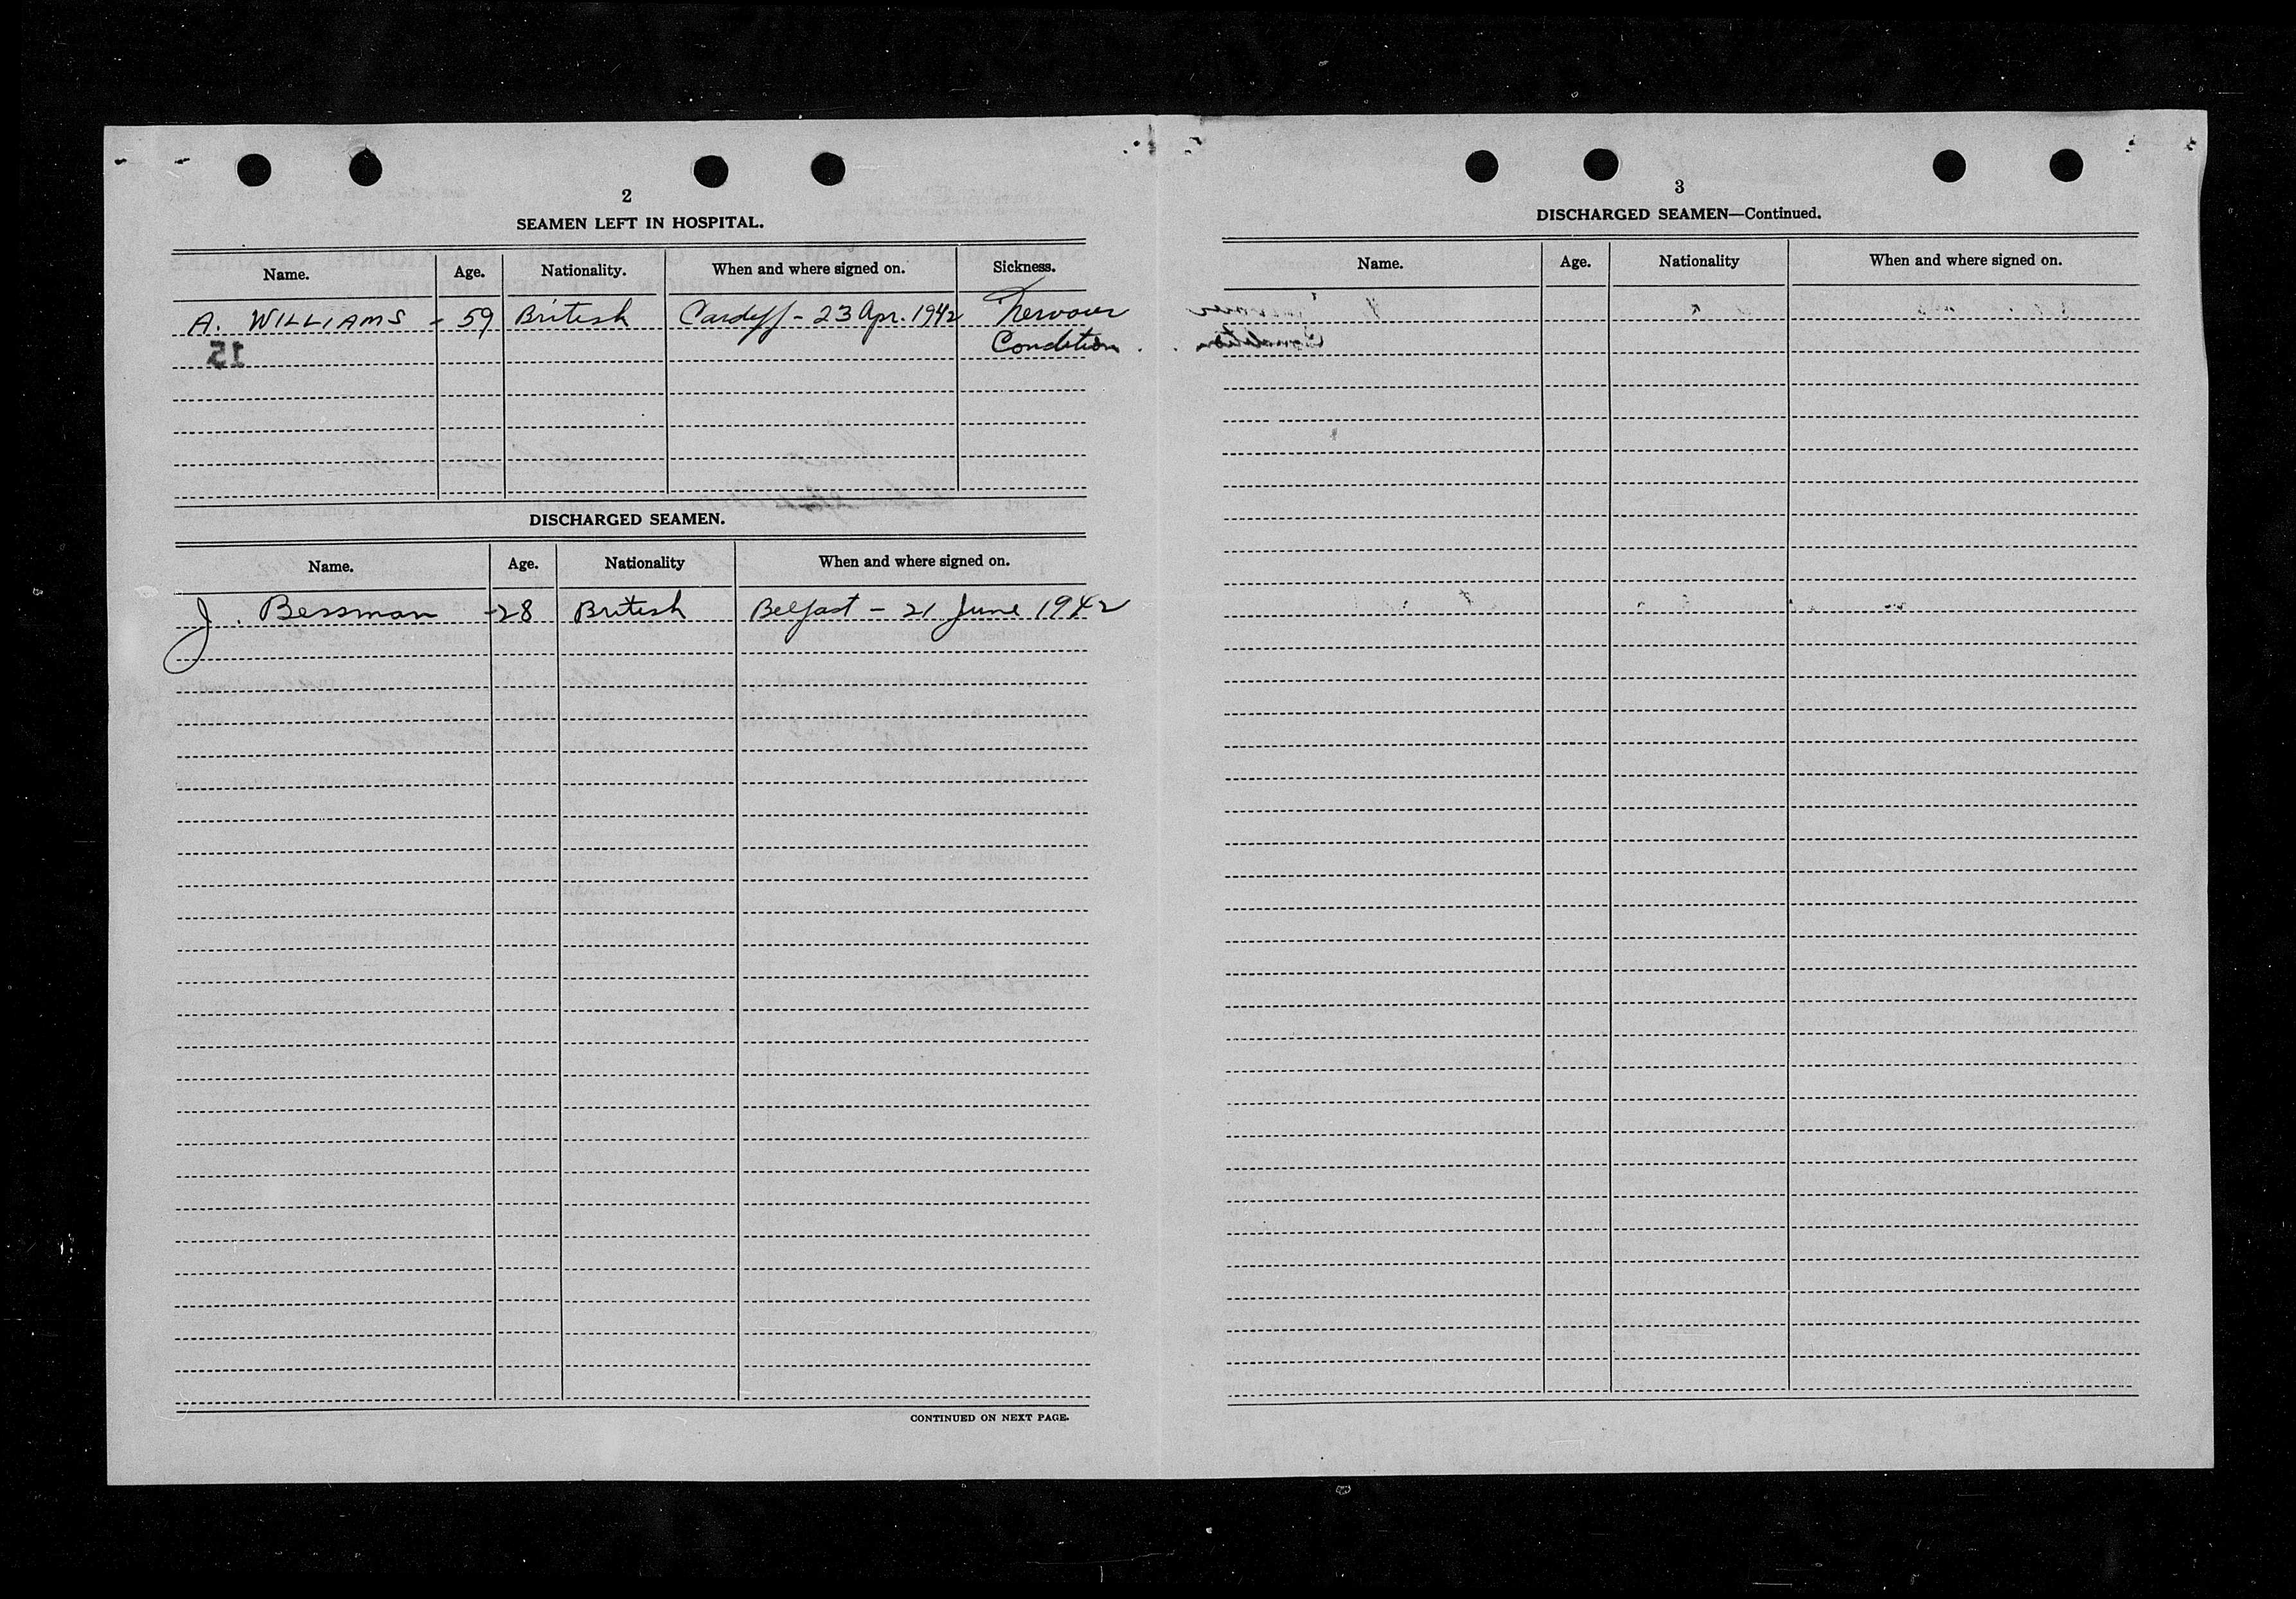 2
SEAMEN LEFT IN HOSPITAL.
Name. Age. Nationality. When and where signed on. Sickness.
A. WILLIAMS - 59 British Cardiff - 23 Apr. 1942 Nervous
Condition.
15
DISCHARGED SEAMEN.
Name. Age. Nationality When and where signed on.
J. Bessman - 28 British Belfast - 21 June 1942
CONTINUED ON NEXT PAGE.
3
DISCHARGED SEAMEN—Continued.
Name. Age. Nationality When and where signed on.